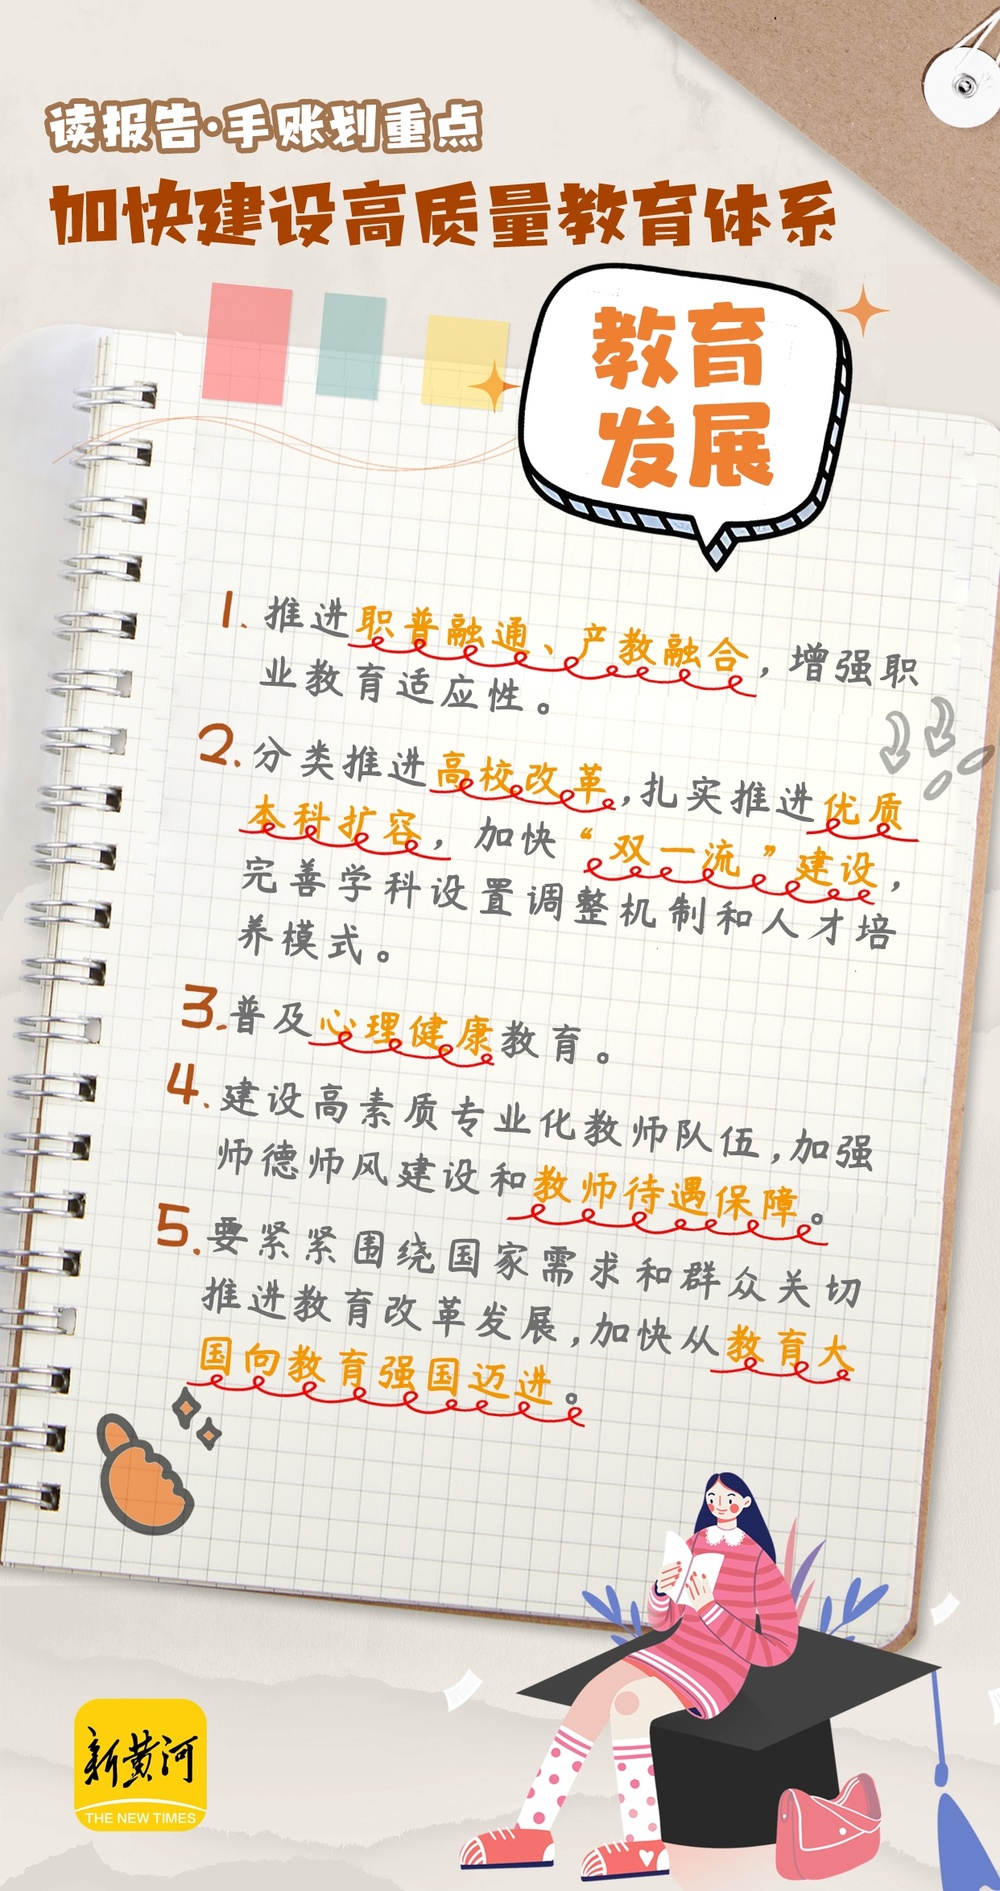 读报告·手账划重点
加快建设高质量教育体系
教育
发展
1.推进职普融通、产教融合，增强职
业教育适应性。
2.分类推进高校改革，扎实推进优质
本科扩容，加快“双一流”建设，
完善学科设置调整机制和人才培
养模式。
3.普及心理健康教育。
4.建设高素质专业化教师队伍，加强
师德师风建设和教师待遇保障。
5.要紧紧围绕国家需求和群众关切
推进教育改革发展，加快从教育大
国向教育强国迈进。
新黄河
THE NEW TIMES